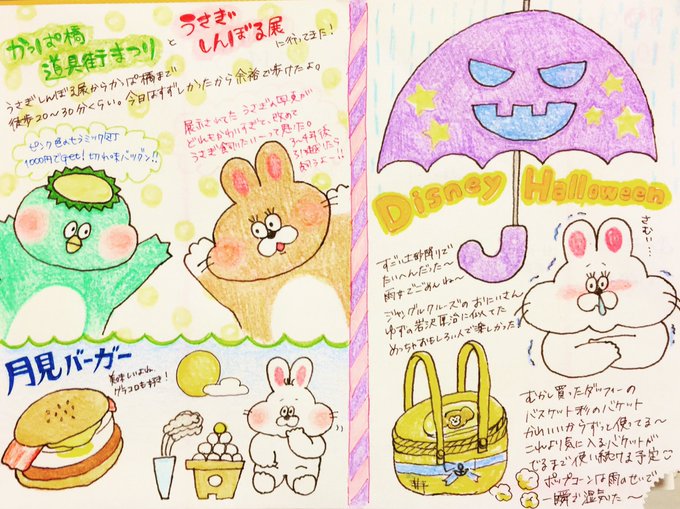 かっぱ橋
道具街まつり
と
うさぎ
しんぼる展
に行ってきた!
うさぎしんぼる展からかっぱ橋まで
徒歩20〜30分くらい。今日はすずしかったから余裕で歩けたよ。
ピンク色のセラミック包丁
1000円でget!切れ味バツグン!!
展示されてたうさぎの写真が
どれもかわいすぎて、改めて
うさぎ飼いたい〜って思た。
3〜4年後
引っ越したら
飼うよー!!
月見バーガー
美味しいよね。
グラコロも好き!
Disney Halloween
さむい…
すごい土砂降りで
たいへんだった〜
雨女でごめんね〜
ジャングルクルーズのおにいさん
ゆずの岩沢厚治に似てた
めっちゃおもしろい人で楽しかった!
むかし買ったダッフィーの
バスケット形のバケット
かわいいからずっと使ってる〜
これより気に入るバケットが
でるまで使い続ける予定
ポップコーンは雨のせいで
一瞬で湿気た〜